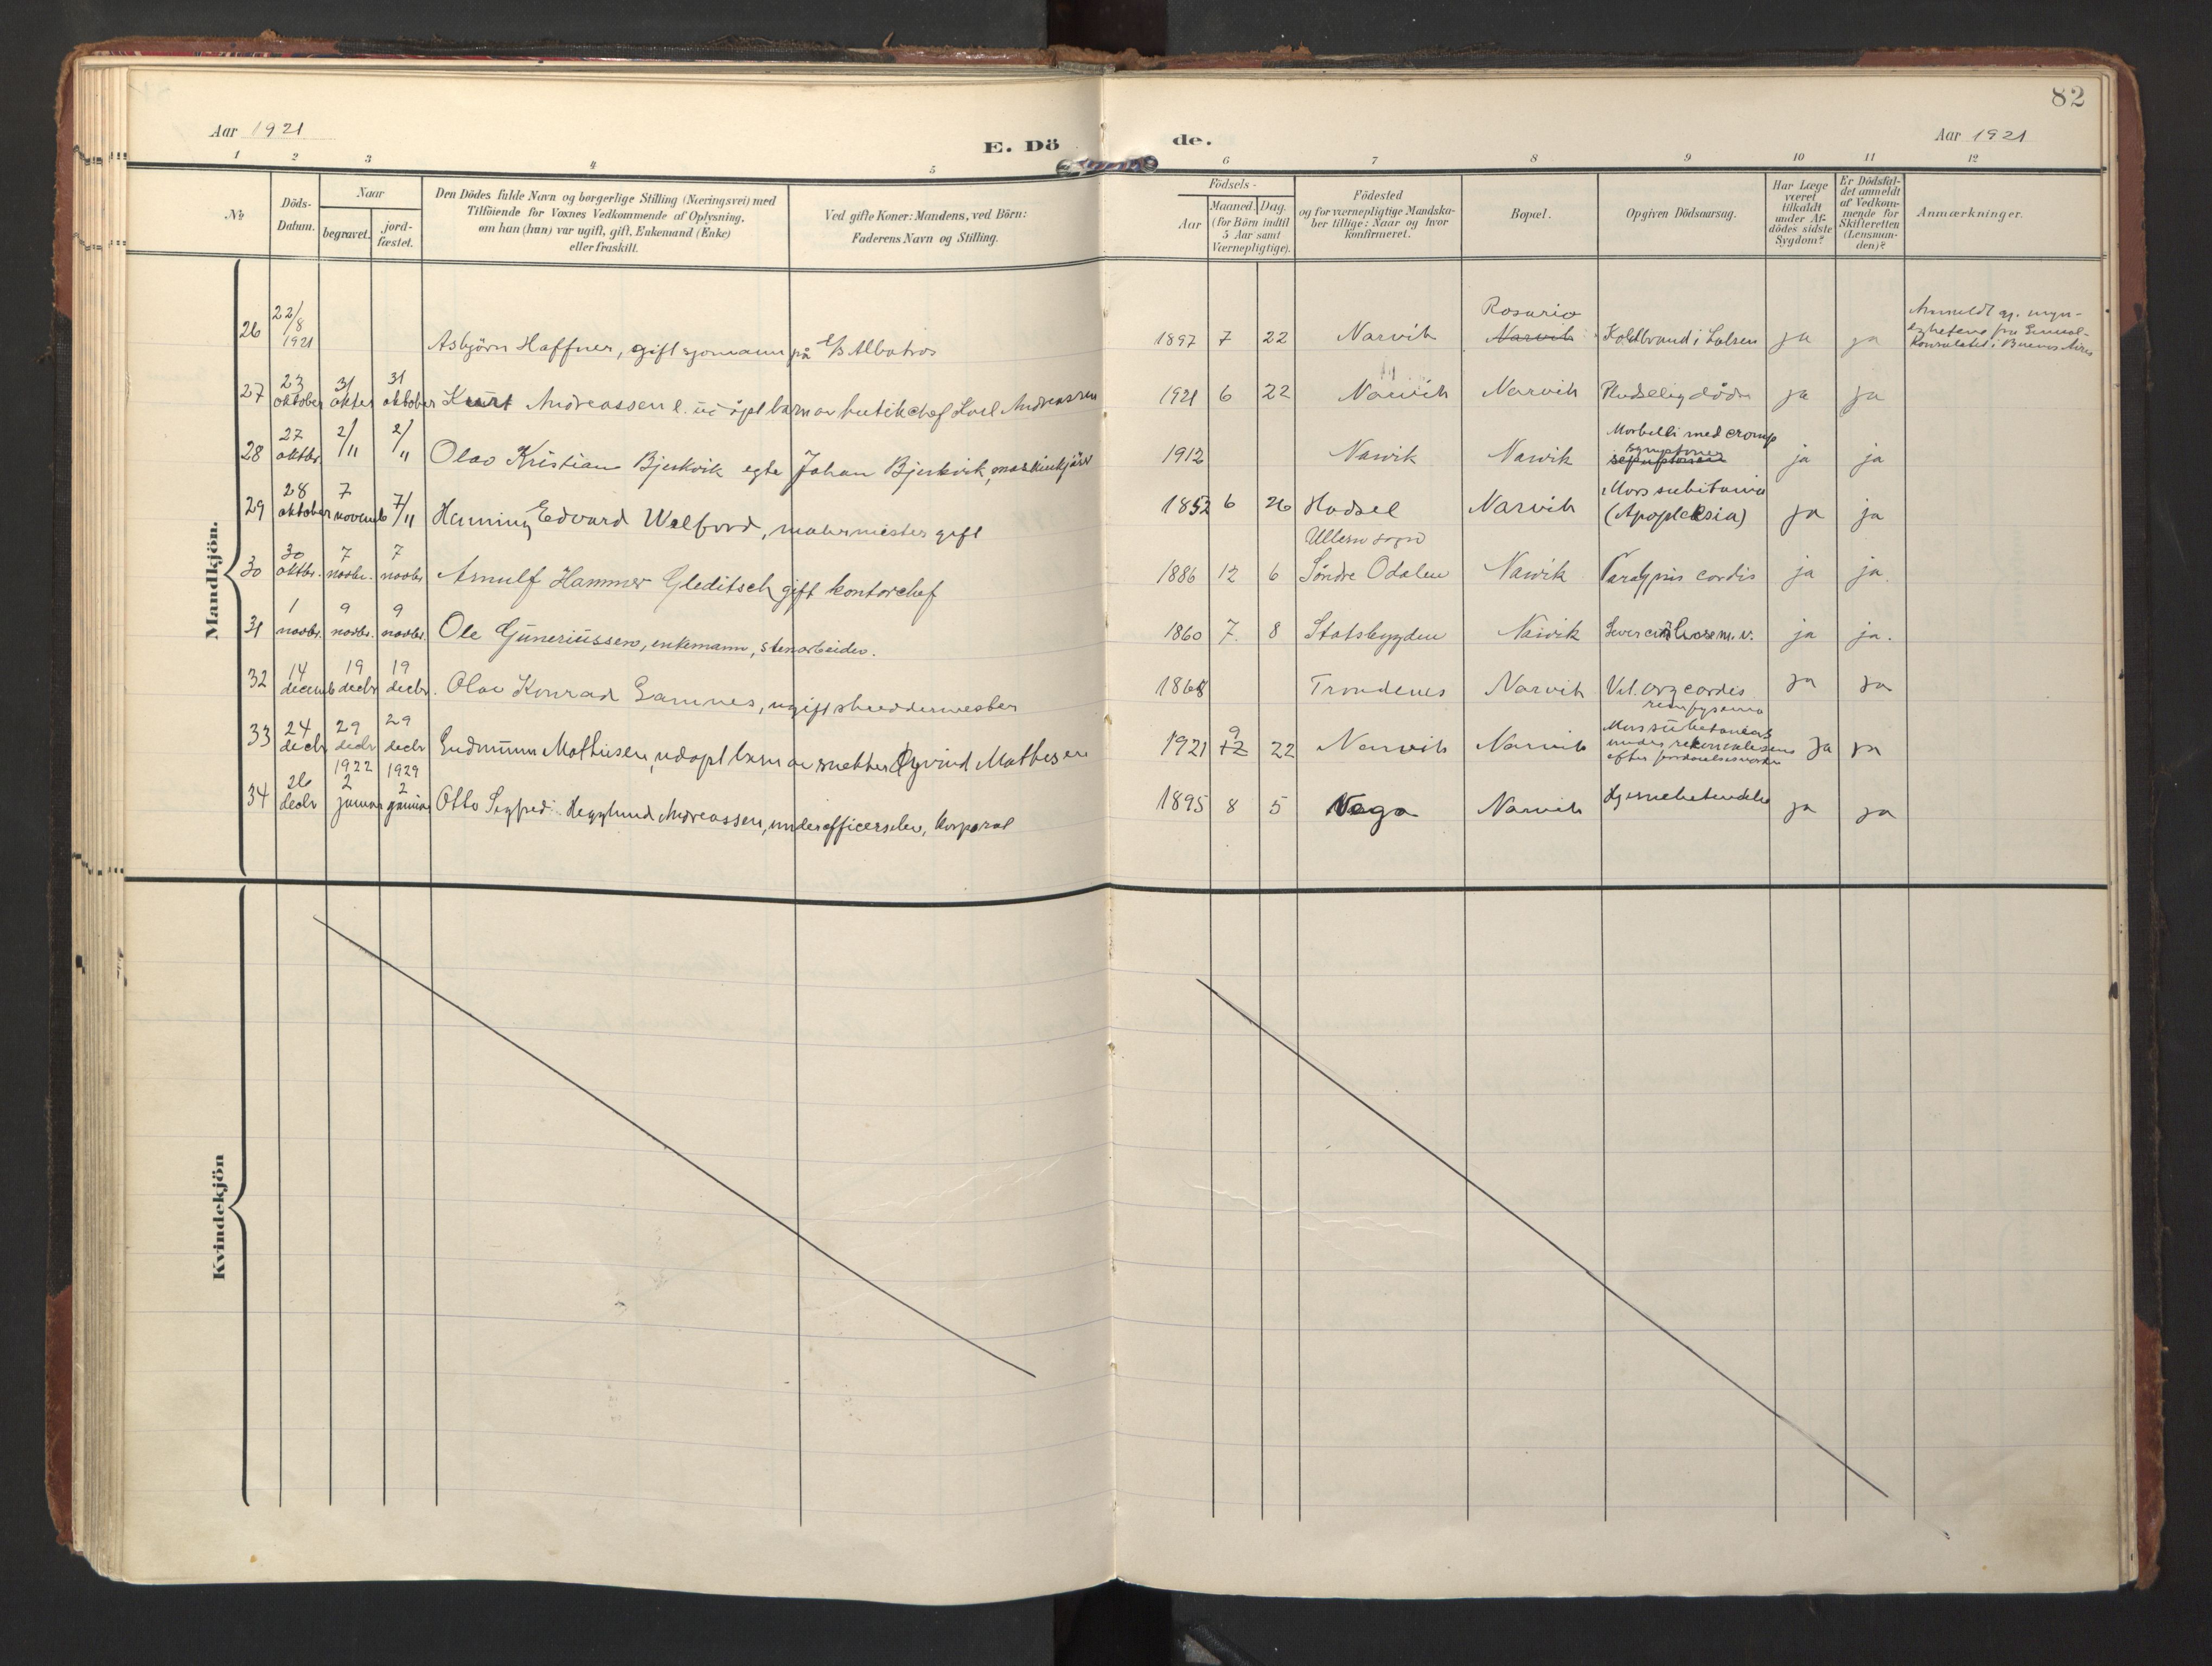 82
Aar 1921
E. Dö de.
Aar 1921
1 2 3 4 5 6 7 8 9 10 11 12
№
Döds-
Datum.
Naar
begravet.
jord-
fæstet.
Den Dödes fulde Navn og borgerlige Stilling (Næringsvei) med
Tilföiende for Voxnes Vedkommende af Oplysning,
om han (hun) var ugift, gift, Enkemand (Enke)
eller fraskilt.
Ved gifte Koner: Mandens, ved Börn:
Faderens Navn og Stilling.
Födsels-
Aar
Maaned. Dag.
(for Börn indtil
5 Aar samt
Værnepligtige).
Födested
og for værnepligtige Mandska-
ber tillige: Naar og hvor
konfirmeret.
Bopæl.
Opgiven Dödsaarsag.
Har Læge
været
tilkaldt
under Af-
dödes sidste
Sygdom?
Er Dödsfal-
det anmeldt
af Vedkom-
mende for
Skifteretten
(Lensman-
den)?
Anmærkninger.
Mandkjön.
26 22/8 1921 Asbjörn Haffner, gift sjømann på S/S Albatros 1897 7 22 Narvik Rosario Narvik Koldbrand i ja ja
27 23 oktober 31 oktbr 31 oktober Kurt Andreassen barn av butikchef Karl Andreassen 1921 6 22 Narvik Narvik Pludselig død ja ja
28 27 oktbr 2/11 2/11 Olav Kristian Bjerkvik egte Johan Bjerkvik, maskinkjører 1912 Narvik Narvik Morbilli med croup symptomer ja ja
29 28 oktober 7 novemb 7/11 Henning Edvard Welford, malermester gift 1852 6 26 Hadsel Narvik Mors subitania (Apopleksia) ja ja
30 30 oktbr. 7 novbr. 7 novbr Arnulf Hammer Gleditsch gift kontorchef 1886 12 6 Ullern sogn Söndre Odalen Narvik Paralysis cordis ja ja.
31 1 novbr. 9 novbr. 9 novbr. Ole Guneriussen, enkemann, stenarbeider. 1860 7. 8 Statsbygden Narvik Levercirrhose m.v. ja ja.
32 14 decemb 19 decbr 19 decbr. Olav Konrad ugift skreddermester 1868 Trondenes Narvik Vit. org cordis ja ja
33 24 decbr 29 decbr 29 decbr Gudmunn Mathisen, udøpt barn av snekker Øyvind Mathisen 1921 9 12 22 Narvik Narvik ja ja
34 26 decbr 1922 2 januar 1929 2 januar Otto Sigfred Hegglund Andreassen, underofficerselev, korporal 1895 8 5 Vega Narvik Hjernebetendelse ja ja
Kvindekjön